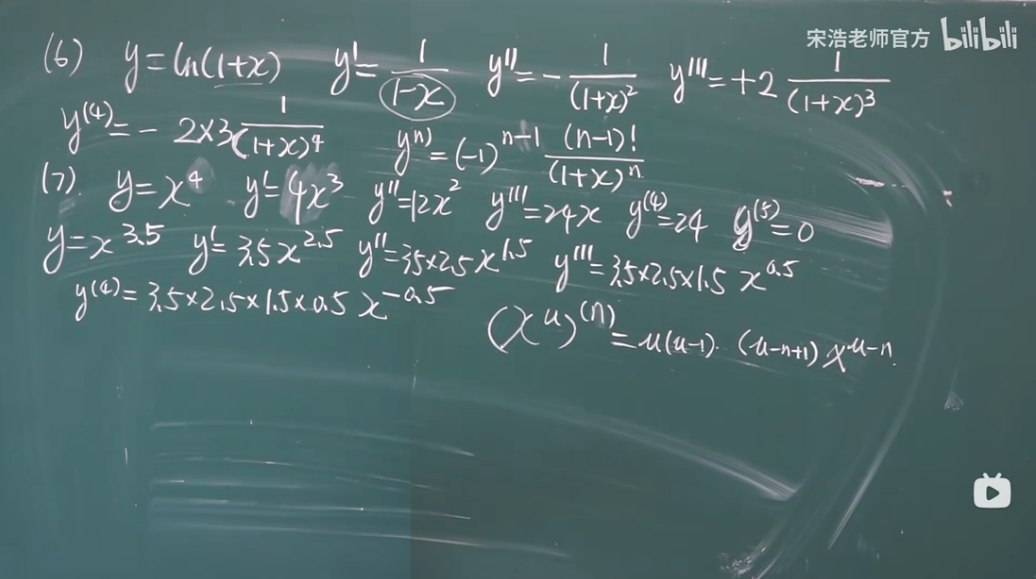 宋浩老师官方 bilibili
(6) y=ln(1+x) y'=1/(1-x) y''=-1/(1+x)² y'''=+2 1/(1+x)³
y⁽⁴⁾=-2×3 1/(1+x)⁴ yⁿ⁾=(-1)ⁿ⁻¹ (n-1)!/(1+x)ⁿ
(7). y=x⁴ y'=4x³ y''=12x² y'''=24x y⁽⁴⁾=24 y⁽⁵⁾=0
y=x^3.5 y'=3.5x^2.5 y''=3.5×2.5x^1.5 y'''=3.5×2.5×1.5 x^0.5
y⁽⁴⁾=3.5×2.5×1.5×0.5 x^-0.5
(x^u)⁽ⁿ⁾=u(u-1)·(u-n+1)x^u-n